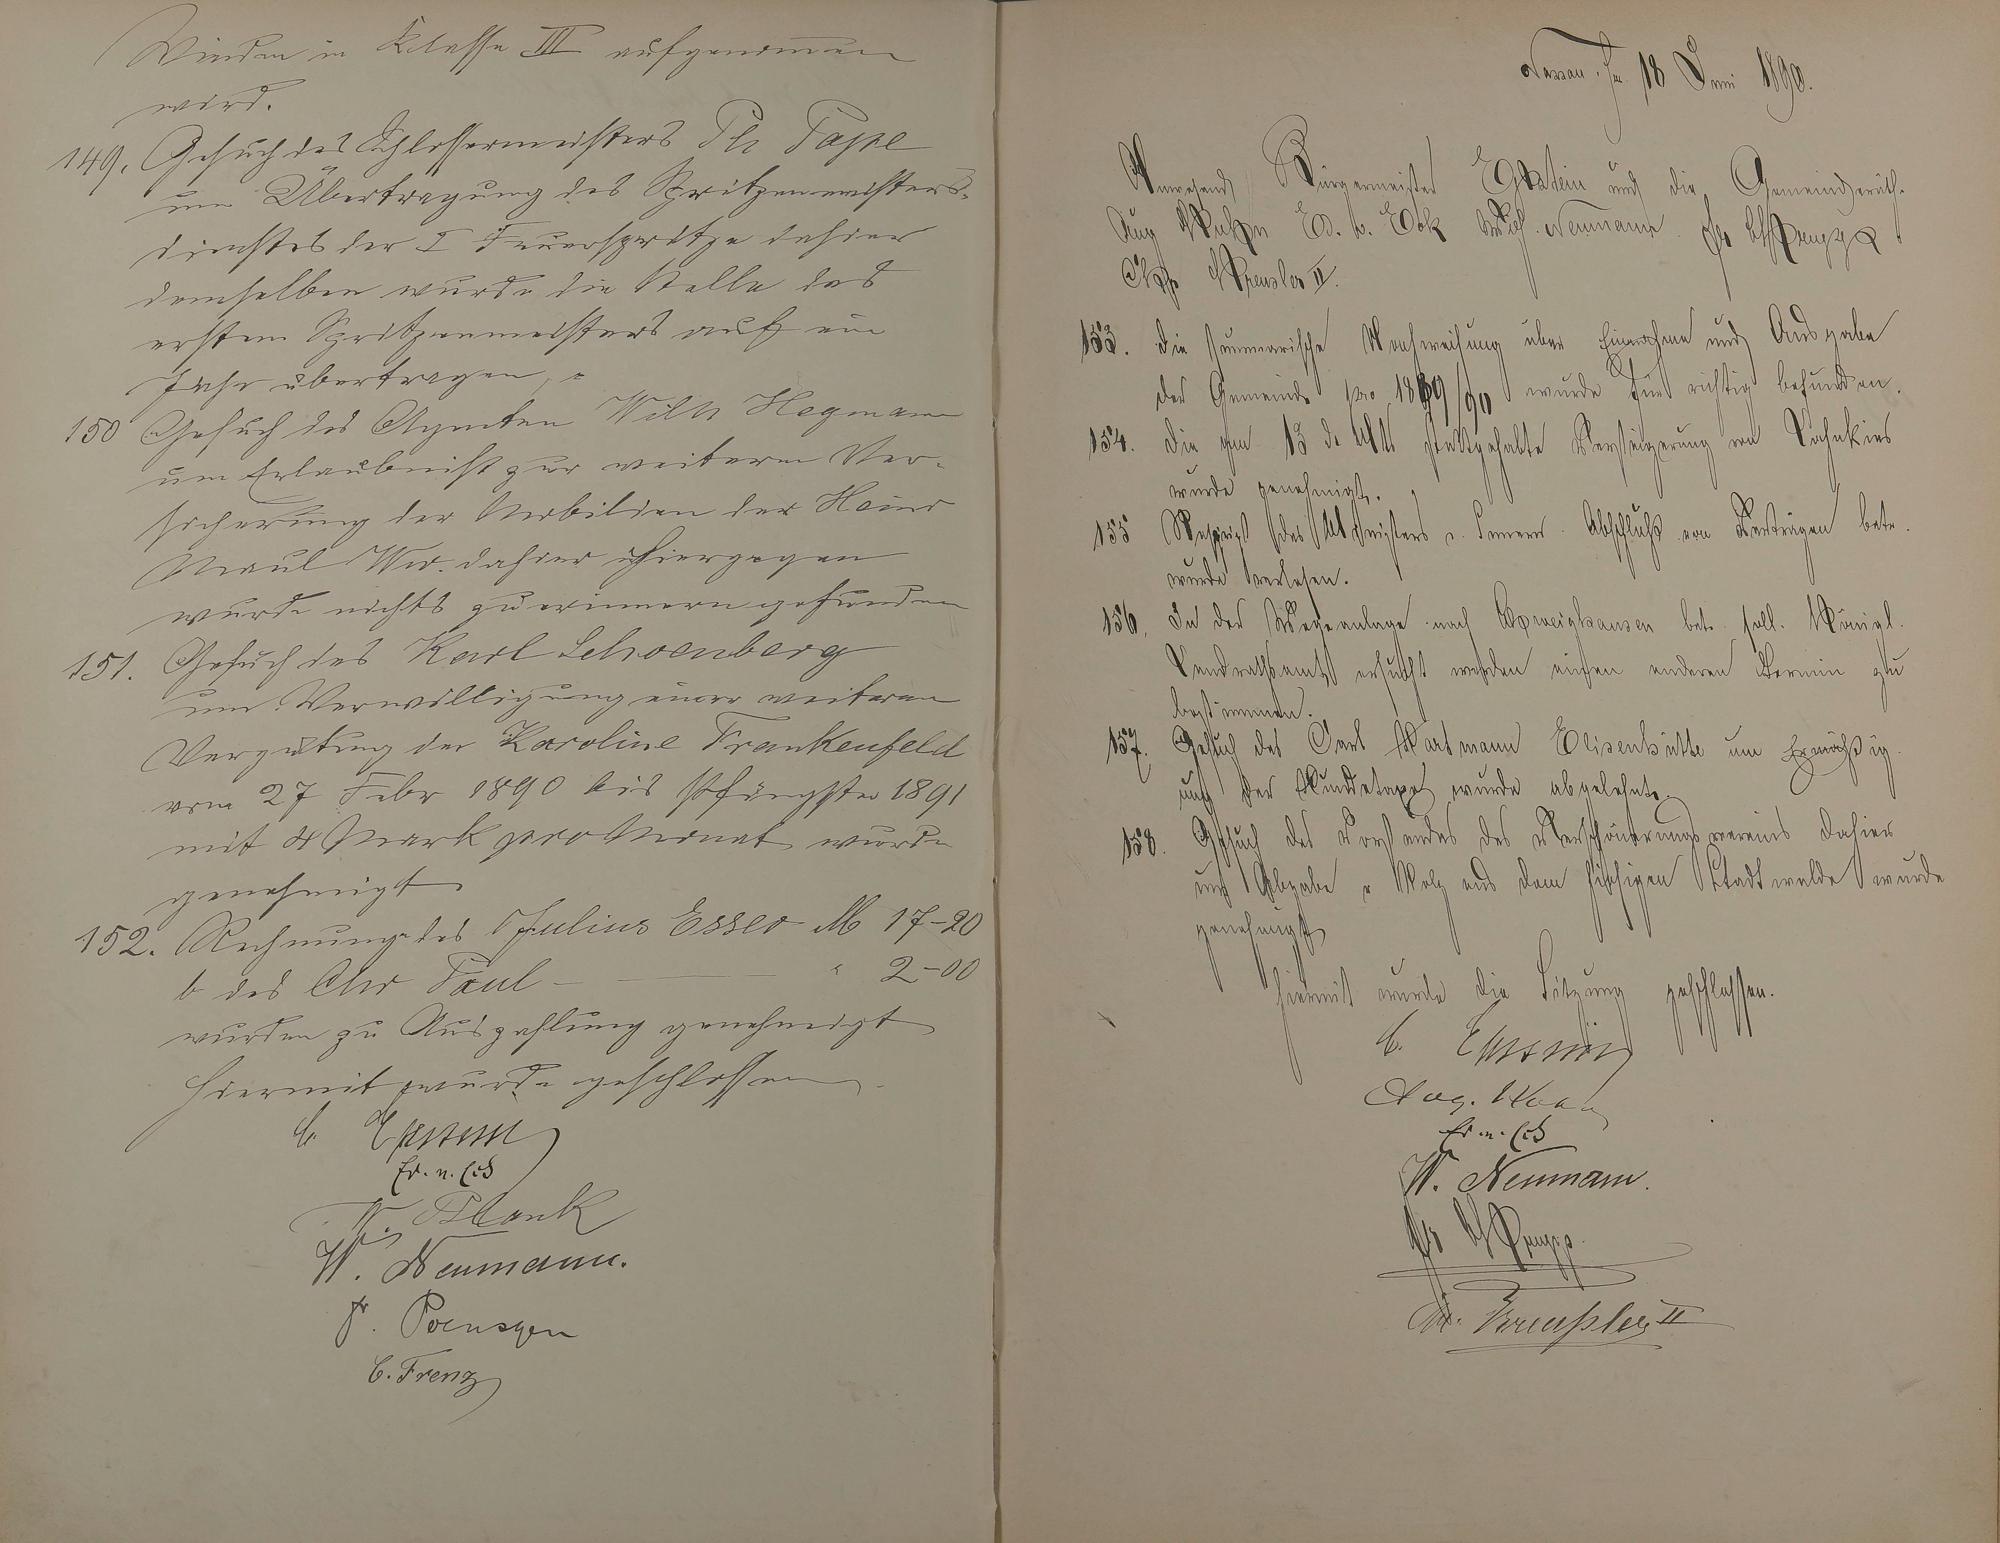 Winden in Klasse III aufgenommen
wird.
149. Gesuch des Schlossermeisters Ph Tappe
um Übertragung des Spritzenmeisters-
dienstes der I Feuerspritze dahier
demselben wurde die Stelle des
ersten Spritzenmeisters auf ein
Jahr übertragen
150 Gesuch des Agenten Wilh Hegmann
um Erlaubniß zur weiteren Ver-
sicherung der Mobilien der
Maul Ww. dahier hiergegen
wurde nichts zu erinnern gefunden
151. Gesuch des Karl Schoenberg
um Verwilligung einer weiteren
Vergütung der Karoline Frankenfeld
vom 27 Febr 1890 bis Pfingsten 1891
mit Mark pro Monat wurde
genehmigt
152. Rechnung des Julius Esser M 17-20
b des Chr Paul - " 2-00
wurden zu Auszahlung genehmigt
Hiermit wurde geschlossen
Ed. v. Eck
W. Neumann.
Poensgen
C. Frenz
Nassau, den 18 Juni 1890.
Anwesend Bürgermeister und die Gemeinderäth.
Aug Ed. v. Eck Wilh. Neumann
Chr Kreusler II.
153. Die summarische Nachweisung über Einnahme und Ausgabe
der Gemeinde pro 1889/90 wurde für richtig befunden.
154. Die am 13 d. Mts stattgehabte Versteigerung von Lahnkies
wurde genehmigt.
155 Rescript des Ministers d. Innern Abschluß von Verträgen betr.
wurde verlesen.
156. In der Wegeanlage nach betr. soll Königl.
Landrathsamt ersucht werden einen anderen Termin zu
bestimmen.
157. Gesuch des Carl Hartmann Elisenhütte um Ermäßig-
ung der Hundetaxe wurde abgelehnt.
158. Gesuch des Vorstandes des Verschönerungsvereins dahier
um Abgabe v Holz aus dem hiesigen Stadtwalde wurde
genehmigt
Hiermit wurde die Sitzung geschlossen.
Aug.
Ed. v. Eck
W. Neumann.
Chr. Kreusler II